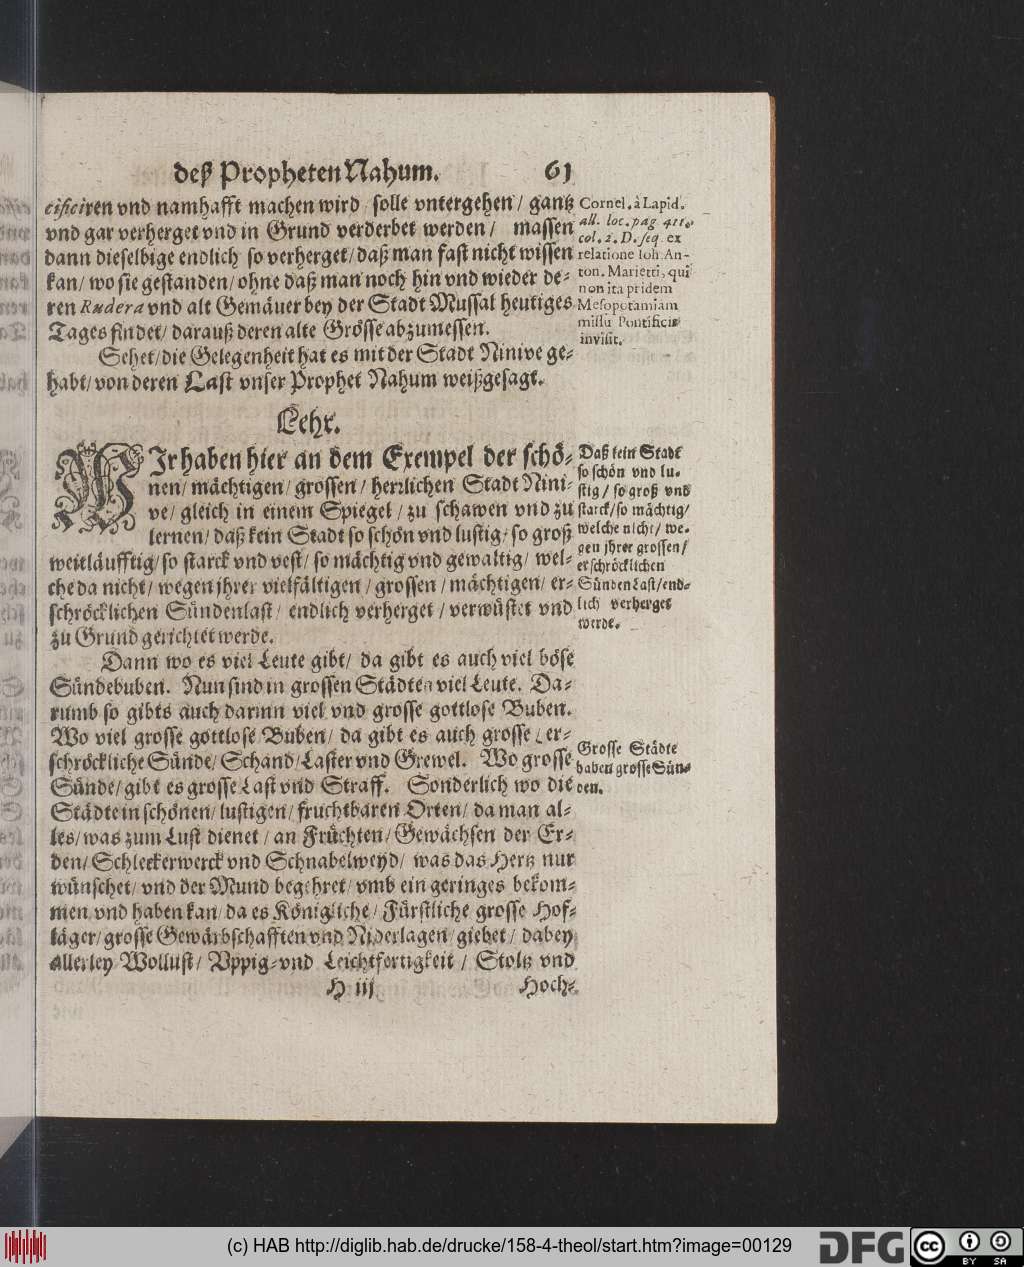 deß Propheten Nahum. 61
cificiren vnd namhafft machen wird / solle vntergehen / gantz
vnd gar verherget vnd in Grund verderbet werden / massen
dann dieselbige endlich so verherget / daß man fast nicht wissen
kan / wo sie gestanden / ohne daß man noch hin vnd wieder de-
ren Rudera vnd alt Gemäuer bey der Stadt Mussal heutiges
Tages findet / darauß deren alte Grösse abzumessen.
Sehet / die Gelegenheit hat es mit der Stadt Ninive ge-
habt / von deren Last vnser Prophet Nahum weißgesagt.
Cornel. à Lapid.
all. loc. pag. 411.
col. 2. D. seq. ex
relatione Ioh. An-
ton. Marietti, qui
non ita pridem
Mesopotamiam
missu Pontificis
invisit.
Lehr.
WIr haben hier an dem Exempel der schö-
nen / mächtigen / grossen / herrlichen Stadt Nini-
ve / gleich in einem Spiegel / zu schawen vnd zu
lernen / daß kein Stadt so schön vnd lustig / so groß
weitläufftig / so starck vnd vest / so mächtig vnd gewaltig / wel-
che da nicht / wegen jhrer vielfältigen / grossen / mächtigen / er-
schröcklichen Sündenlast / endlich verherget / verwüstet vnd
zu Grund gerichtet werde.
Daß kein Stadt
so schön vnd lu-
stig / so groß vnd
starck / so mächtig /
welche nicht / we-
gen jhrer grossen /
erschröcklichen
Sünden Last / end-
lich verherget
werde.
Dann wo es viel Leute gibt / da gibt es auch viel böse
Sündebuben. Nun sind in grossen Städten viel Leute. Da-
rumb so gibts auch darinn viel vnd grosse gottlose Buben.
Wo viel grosse gottlose Buben / da gibt es auch grosse / er-
schröckliche Sünde / Schand / Laster vnd Grewel. Wo grosse
Sünde / gibt es grosse Last vnd Straff. Sonderlich wo die
Städte in schönen / lustigen / fruchtbaren Orten / da man al-
les / was zum Lust dienet / an Früchten / Gewächsen der Er-
den / Schleckerwerck vnd Schnabelweyd / was das Hertz nur
wünschet / vnd der Mund begehret / vmb ein geringes bekom-
men vnd haben kan / da es Königliche / Fürstliche grosse Hof-
läger / grosse Gewärbschafften vnd Niderlagen / giebet / dabey
allerley Wollust / Vppig- vnd Leichtfertigkeit / Stoltz vnd
Grosse Städte
haben grosse Sün-
den.
H iij Hoch-
(c) HAB http://diglib.hab.de/drucke/158-4-theol/start.htm?image=00129
DFG
cc BY SA